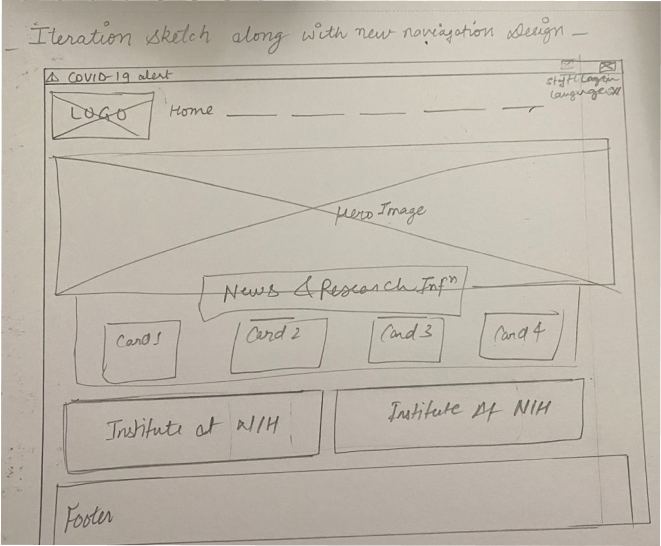 Iteration sketch along with new navigation design
COVID-19 alert
Staff Login
Language
LOGO
Home
Hero Image
News & Research Infⁿ
Card 1
Card 2
Card 3
Card 4
Institute at NIH
Institute At NIH
Footer